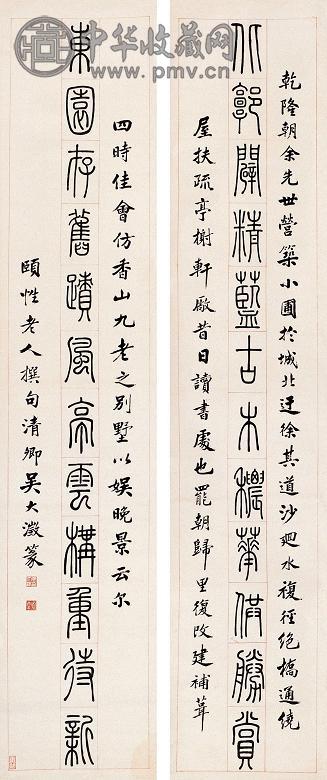 中华收藏网
www.pmv.cn
乾隆朝余先世營築小圃於城北迂徐其道沙廻水複徑絶橋通繞
北郭闢精藍古木穠華供勝賞
屋扶疏亭榭軒厰昔日讀書處也罷朝歸里復改建補葺
四時佳會仿香山九老之別墅以娛晚景云尔
東園存舊蹟風亭雲構重待新
頤性老人撰句清卿吳大澂篆